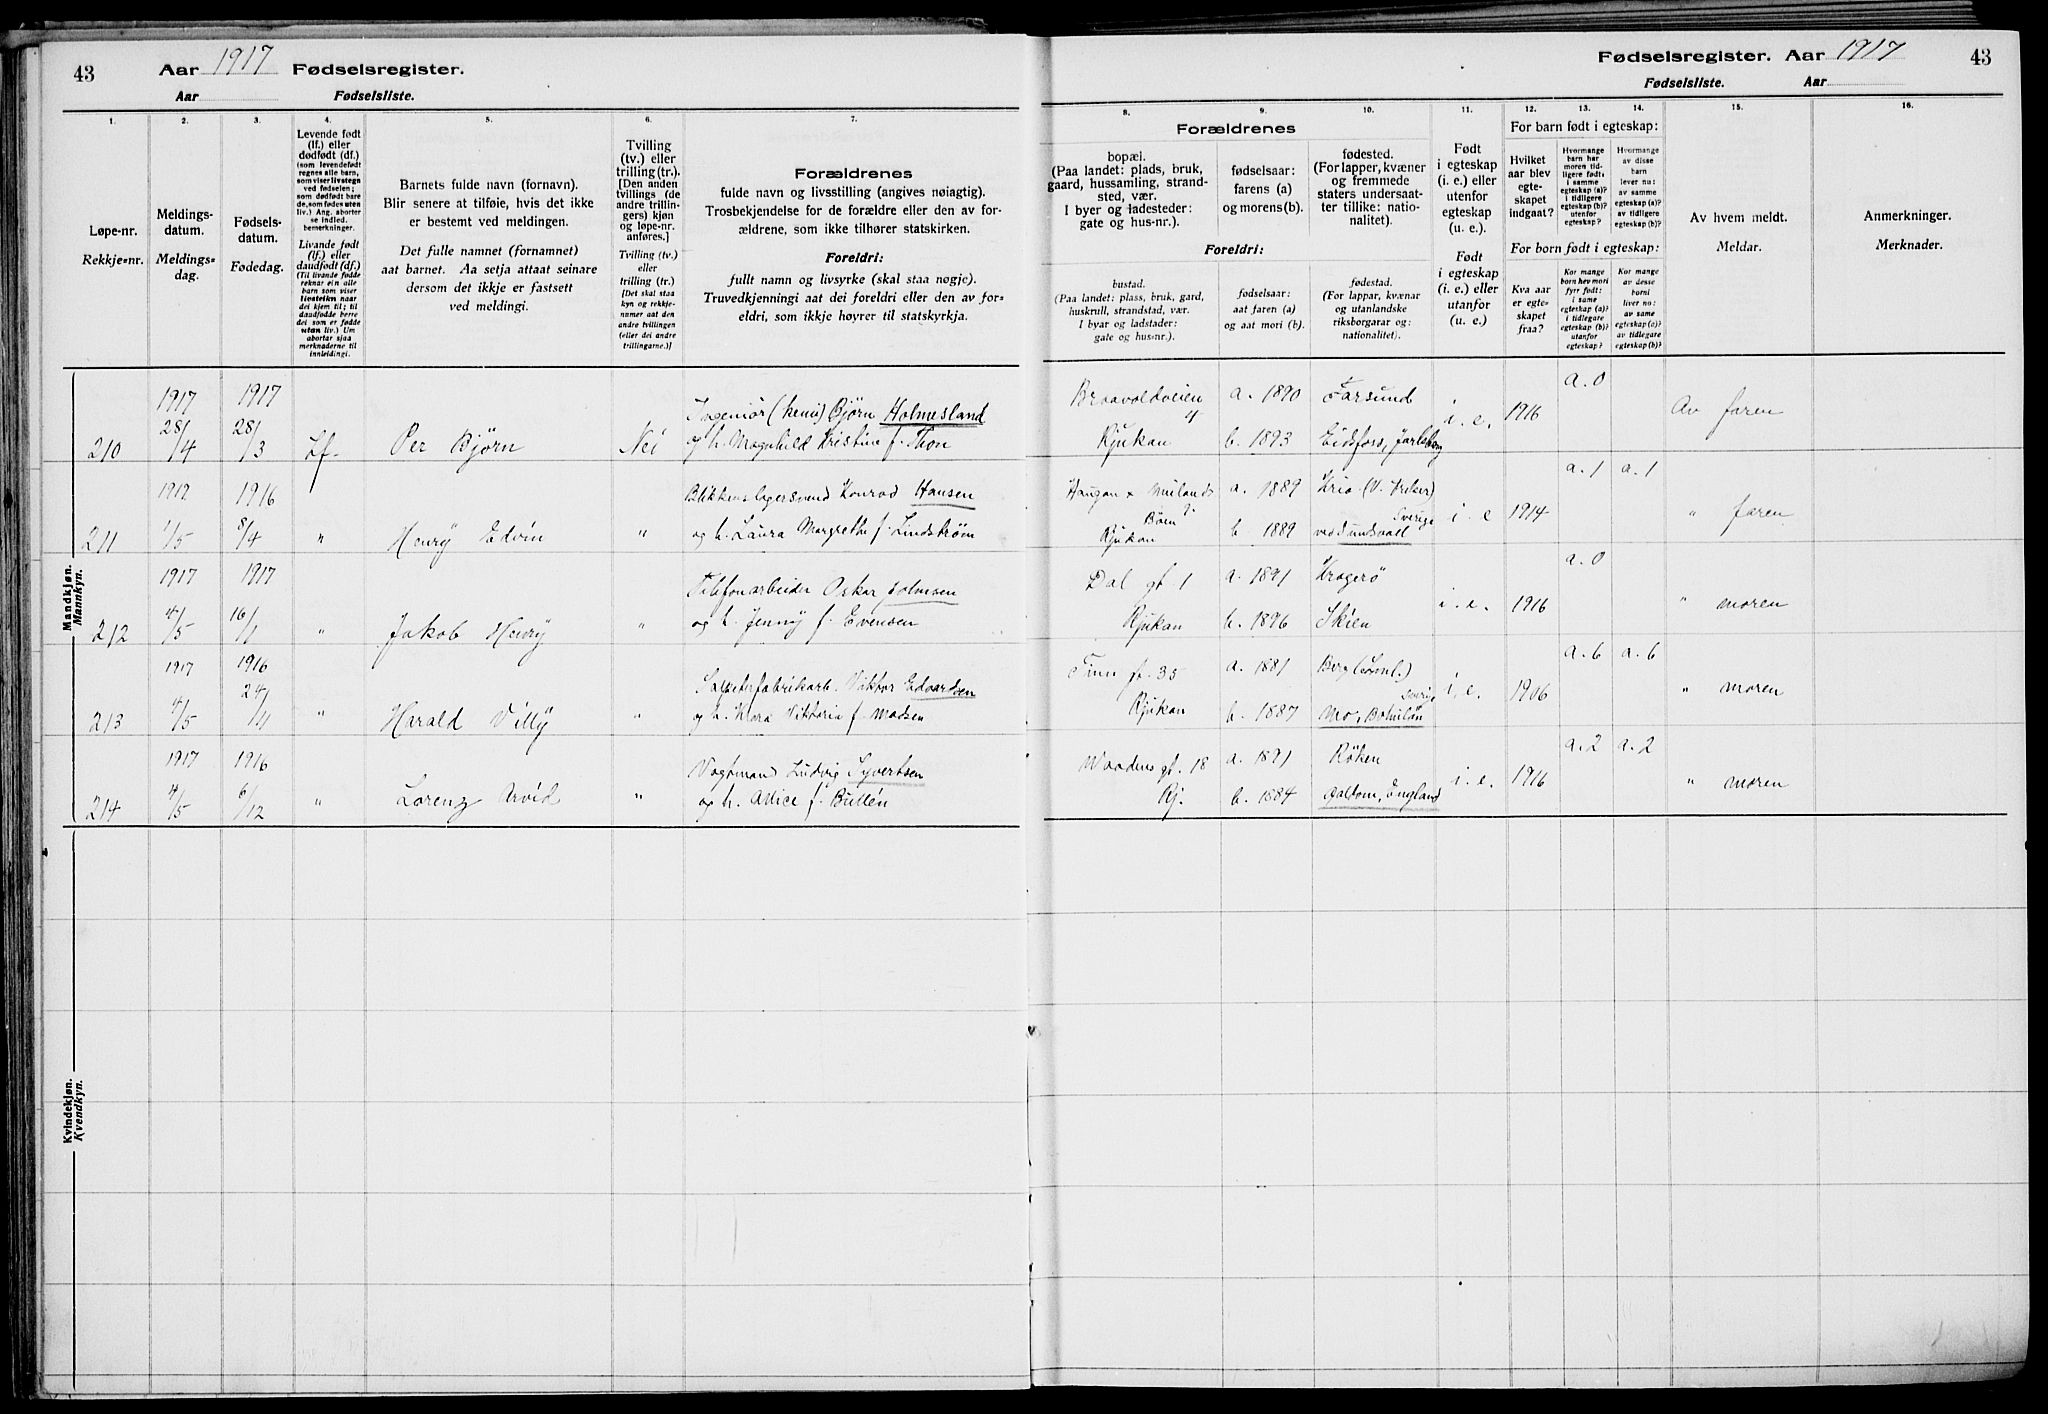 43 Aar 1917 Fødselsregister.
Aar Fødselsliste.
Fødselsregister. Aar 1917 43
Fødselsliste. Aar
1.
Løpe-nr.
Rekkje-nr.
2.
Meldings-
datum.
Meldings-
dag.
3.
Fødsels-
datum.
Fødedag.
4.
Levende født
(lf.) eller
dødfødt (df.)
(som levendefødt
regnes alle barn,
som viser livstegn
ved fødselen;
som dødfødt bare
de, som fødes uten
liv.) Ang. aborter
se indled.
bemerkninger.
Livande født
(lf.) eller
daudfødt (df.)
(Til livande fødde
reknar ein alle
barn som viser
livsteikn naar
dei kjem til; til
daudfødde berre
dei som er fødde
utan liv.) Um
abortar sjaa
merknaderne til
innleidingi.
5.
Barnets fulde navn (fornavn).
Blir senere at tilføie, hvis det ikke
er bestemt ved meldingen.
Det fulle namnet (fornamnet)
aat barnet. Aa setja attaat seinare
dersom det ikkje er fastsett
ved meldingi.
6.
Tvilling
(tv.) eller
trilling (tr.).
[Den anden
tvillings (de
andre trillin-
gers) kjøn
og løpe-nr.
anføres.]
Tvilling (tv.)
eller
trilling (tr.)
[Det skal staa
kyn og rekkje-
numer aat den
andre tvillingen
(eller dei andre
trillingarne.)]
7.
Forældrenes
fulde navn og livsstilling (angives nøiagtig).
Trosbekjendelse for de forældre eller den av for-
ældrene, som ikke tilhører statskirken.
Foreldri:
fullt namn og livsyrke (skal staa nøgje).
Truvedkjenningi aat dei foreldri eller den av for-
eldri, som ikkje høyrer til statskyrkja.
Forældrenes
8.
bopæl.
(Paa landet: plads, bruk,
gaard, hussamling, strand-
sted, vær.
I byer og ladesteder:
gate og hus-nr.).
9.
fødselsaar:
farens (a)
og morens (b).
10.
fødested.
(For lapper, kvæner
og fremmede
staters undersaat-
ter tillike: natio-
nalitet).
Foreldri:
bustad.
(Paa landet: plass, bruk, gard,
huskrull, strandstad, vær.
I byar og ladstader:
gate og hus-nr.).
fødselsaar:
aat faren (a)
og aat mori (b).
fødestad.
(For lappar, kvænar
og utanlandske
riksborgarar og:
nationalitet).
11.
Født
i egteskap
(i. e.) eller
utenfor
egteskap
(u. e.).
Født
i egteskap
(i. e.) eller
utanfor
egteskap
(u. e.)
12. 13. 14.
For barn født i egteskap:
Hvilket
aar blev
egte-
skapet
indgaat?
Hvormange
barn har
moren tid-
ligere født:
i samme
egteskap (a)?
i tidligere
egteskap (b)?
utenfor
egteskap?
Hvormange
av disse
barn
lever nu:
av samme
egteskap (a)?
av tidligere
egteskap (b)?
For born født i egteskap:
Kva aar
er egte-
skapet
fraa?
Kor mange
born hev mori
fyrr født:
i same
egteskap (a)?
i tidlegare
egteskap (b)?
utanfor
egteskap?
Kor mange
av desse
borni
liver no:
av same
egteskap (a)?
av tidlegare
egteskap (b)?
15.
Av hvem meldt.
Meldar.
16.
Anmerkninger.
Merknader.
Mandkjøn.
Mannkyn.
1917 1917 Ingeniør (kemi) Bjørn Holmesland a. 1890 Farsund a. 0
210 28/4 28/3 Lf. Per Björn Nei og h. Magnhild Kristine f. Thon 4 Rjukan b. 1893 Eidsfoss, Jarlsberg i. e. 1916 Av faren
1917 1916 Blikkenslagersvend Konrad Hansen a. 1889 Kria (V. Aker) a. 1 a. 1
211 1/5 8/4 " Henry Edvin " og h. Laura Margrethe f. Lindstrøm Rjukan b. 1889 ved Sundsvall Sverige i. e 1914 " faren
1917 1917 Telefonarbeider Oskar Holmsen Dal gt 1 a. 1891 Kragerö a. 0
212 4/5 16/1 " Jakob Henry " og h. Jenny f. Evensen Rjukan b. 1896 Skien i. e. 1916 " moren
1917 1916 Salpeterfabrikarb. Viktor Edvardsen Tinn gt. 35 a. 1881 Berg (Sml.) a. 6 a. 6
213 4/5 24/11 " Harald Villy " og h. Klara Viktoria f. Madsen Rjukan b. 1887 Mo, Bohuslän Sverige i. e. 1906 " moren
1917 1916 Vognmand Ludvig Syvertsen Waadens gt. 18 a. 1891 Röken a. 2 a. 2
214 4/5 6/12 " Lorenz Arvid " og h. Allice f. Bullén Rj. b. 1884 England i. e. 1916 " moren
Kvindekjøn.
Kvendkyn.